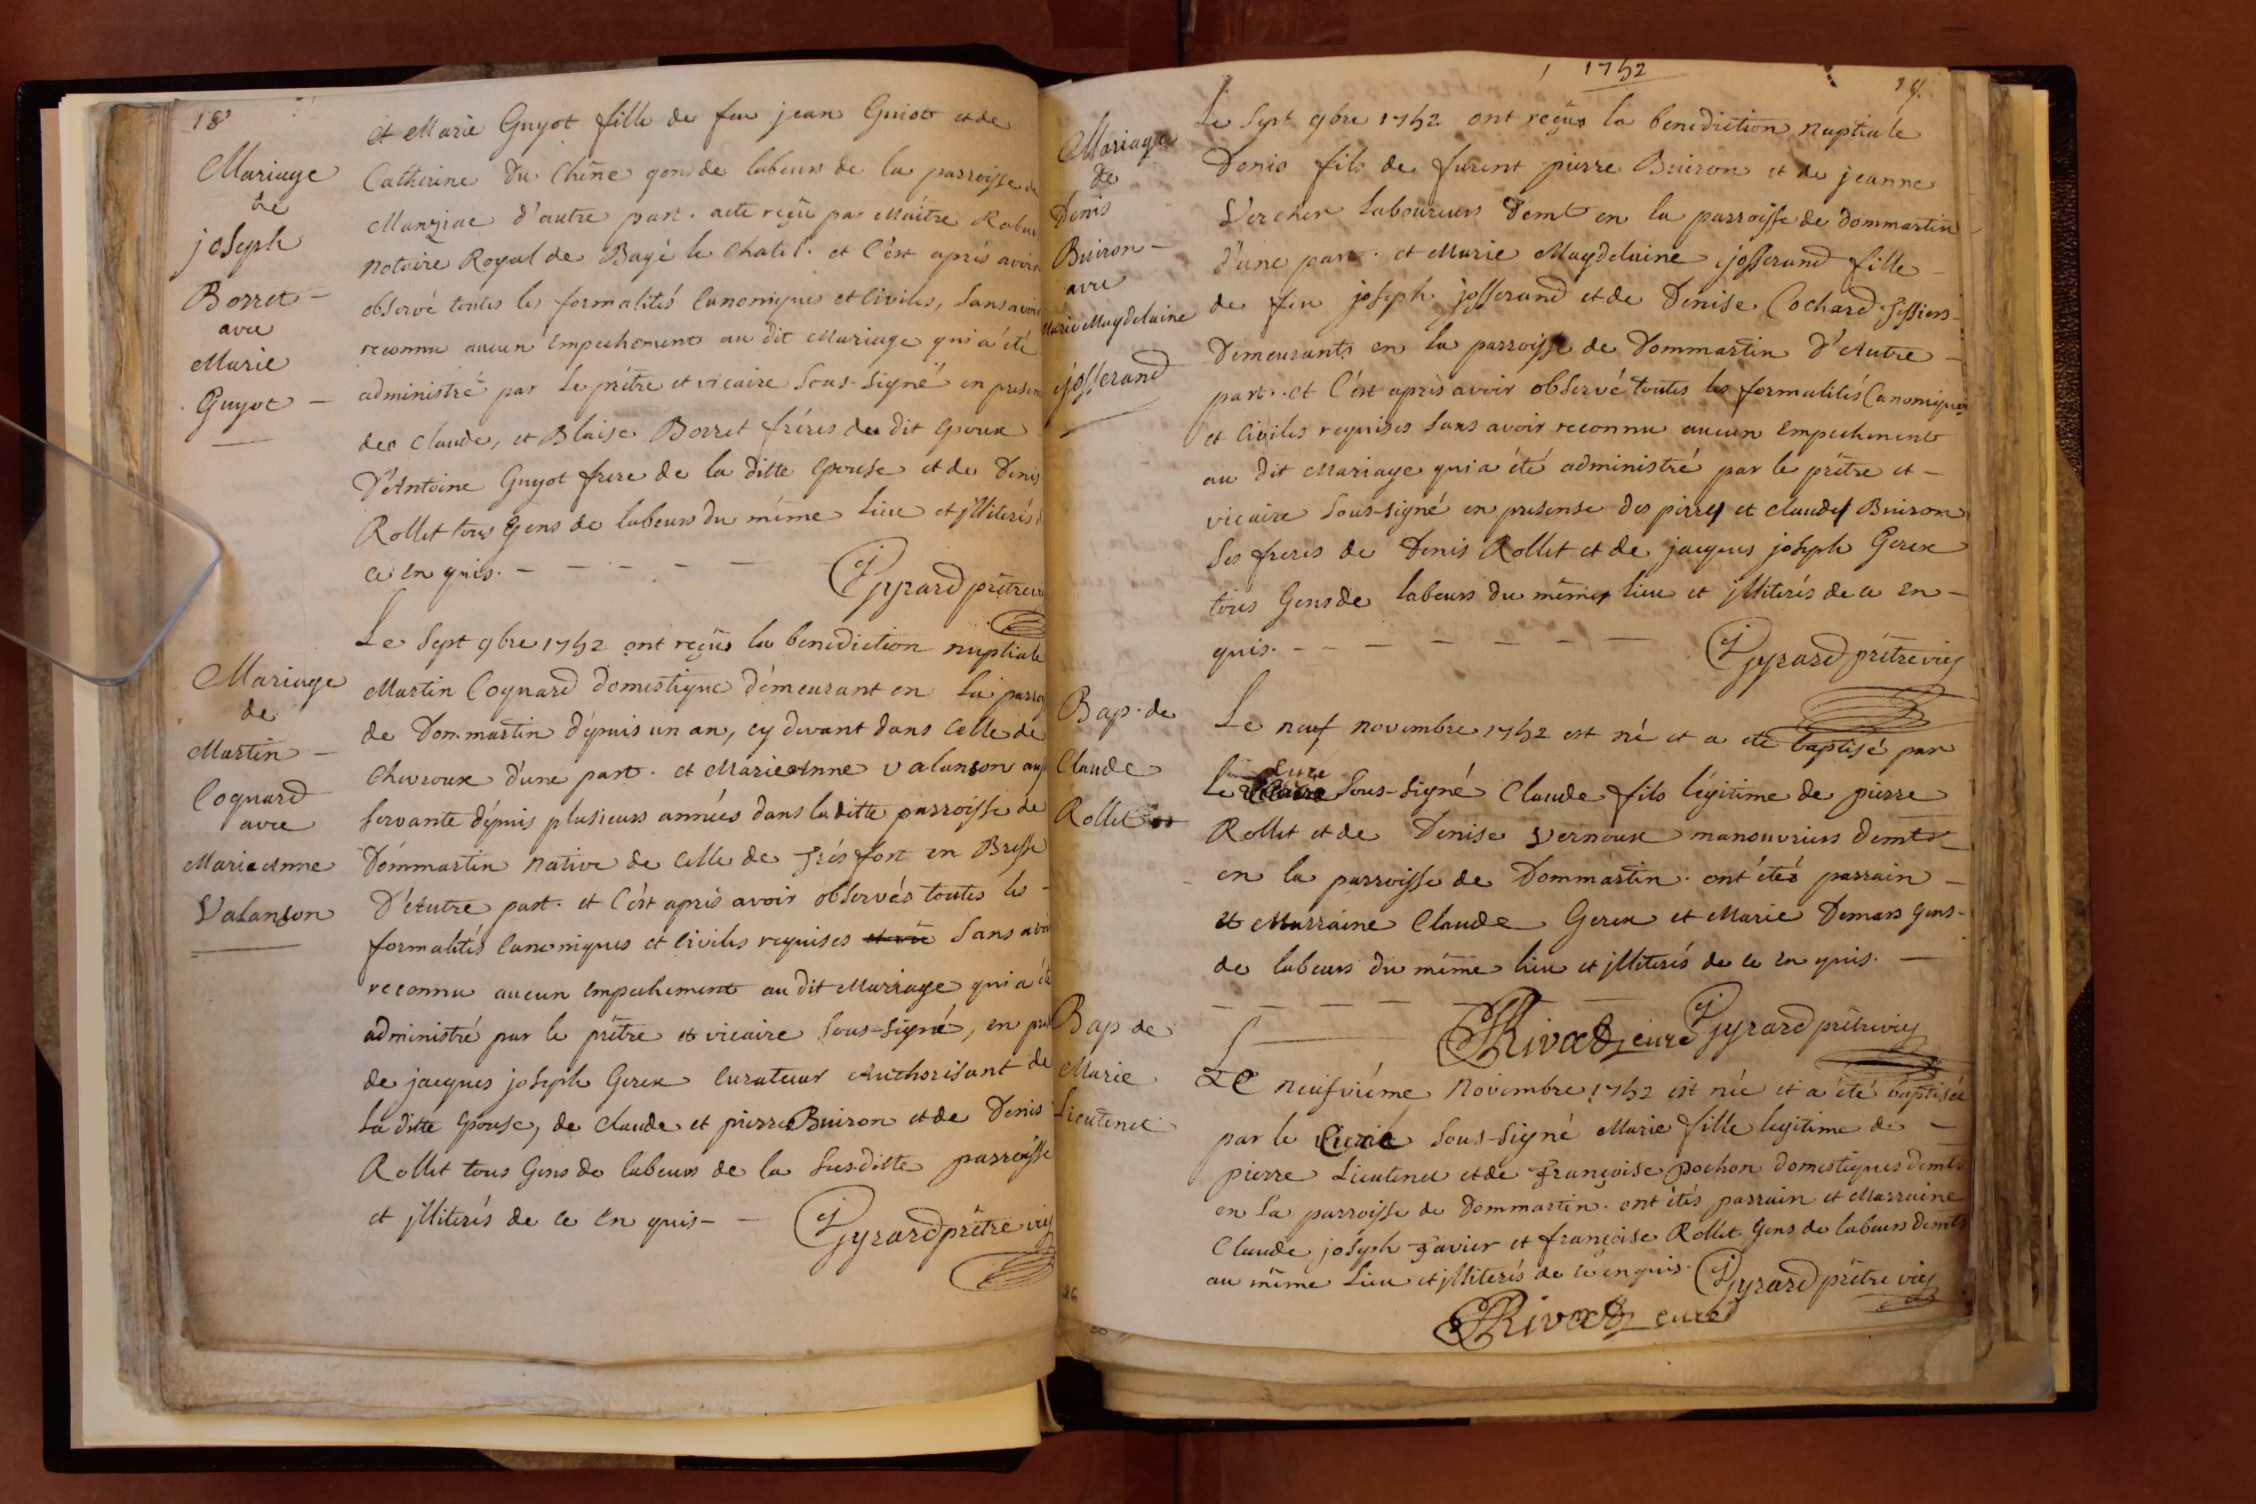 18
Mariage
de
joseph
Borret -
avec
Marie
Guyot -
et Marie Guyot fille de feu jean Guiot et de
Catherine Du Chêne gens de labeurs de la parroisse de
Manziac d'autre part. acte reçû par Maître
notaire Royal de Bagé le Chatel. et C'est aprés avoir
observé toutes les formalités Canoniques et Civiles, sans avoir
reconnu aucun Empechement au dit Mariage qui a été
administré par le prêtre et vicaire Sous-signé en presen
des Claude, et Blaise Borret fréres du dit Epoux
D'Antoine Guyot frere de la ditte Epouse et de Denis
Rollet tous Gens de labeurs du même lieu et jlliterés
ce En quis. - - - - - -
Gyrard prêtre vic
Mariage
de
Martin -
Cognard
avec
Marie Anne
Valanson
Le Sept 9bre 1752 ont reçûs la benediction nuptiale
Martin Cognard domestique démeurant en la parroi
de Dommartin dépuis un an, cy devant dans Celle de
Chevroux d'une part. et Marie Anne Valanson
servante dépuis plusieurs années dans la ditte parroisse de
Dommartin native de Celle de Tréfort en Bresse
D'Autre part. et C'est aprés avoir observés toutes les -
formalités Canoniques et Civiles requises Sans avoi
reconnu aucun Empechement au dit Mariage qui a été
administré par le prêtre et vicaire Sous-signé, en pre
de jacques joseph Gerex Curateur Authorisant de
La ditte Epouse, de Claude et pierre Buiron et de Denis
Rollet tous Gens de labeurs de la susditte parroisse
et jlliterés de ce En quis - -
Gyrard prêtre vic
1752
19.
Mariage
de
Denis
Buiron -
avec
Marie Magdelaine
josserand
Le Sept 9bre 1752 ont reçûs la benediction nuptiale
Denis fils de furent pierre Buiron et de jeanne
Vercher Laboureurs Demt en la parroisse de Dommartin
d'une part. et Marie Magdelaine josserand fille -
de feu joseph josserand et de Denise Cochard
Demeurants en la parroisse de Dommartin D'Autre -
part. et C'est aprés avoir observé toutes les formalités Canoniques
et Civiles requises sans avoir reconnu aucun Empechement
au dit Mariage qui a été administré par le prêtre et -
vicaire Sous-signé en presense des pierre et Claude Buiron
Ses freres de Denis Rollet et de jacques joseph Gerex
tous Gens de labeurs du même lieu et jlliterés de ce En -
quis. - - - - - - -
Gyrard prêtre vic
Bap. de
Claude
Rollet
Le neuf novembre 1752 est né et a eté baptisé par
Curé
le Sous-signé Claude fils légitime de pierre
Rollet et de Denise Vernoux manouvriers demts
en la parroisse de Dommartin. ont étés parrain -
et Marraine Claude Gerex et Marie Demars Gens -
de labeurs du même lieu et jlliterés de ce en quis. -
Rivat curé Gyrard prêtre vic
Bap de
Marie
Lieutenet
Le neufviéme Novembre 1752 est née et a été baptisée
par le Curé Sous-signé Marie fille legitime de -
pierre Lieutenet et de françoise pochon domestiques demts
en la parroisse de Dommartin. ont étés parrain et Marraine
Claude joseph et françoise Rollet Gens de labeurs demts
au même Lieu et jlliterés de ce en quis. Gyrard prêtre vic
Rivat curé